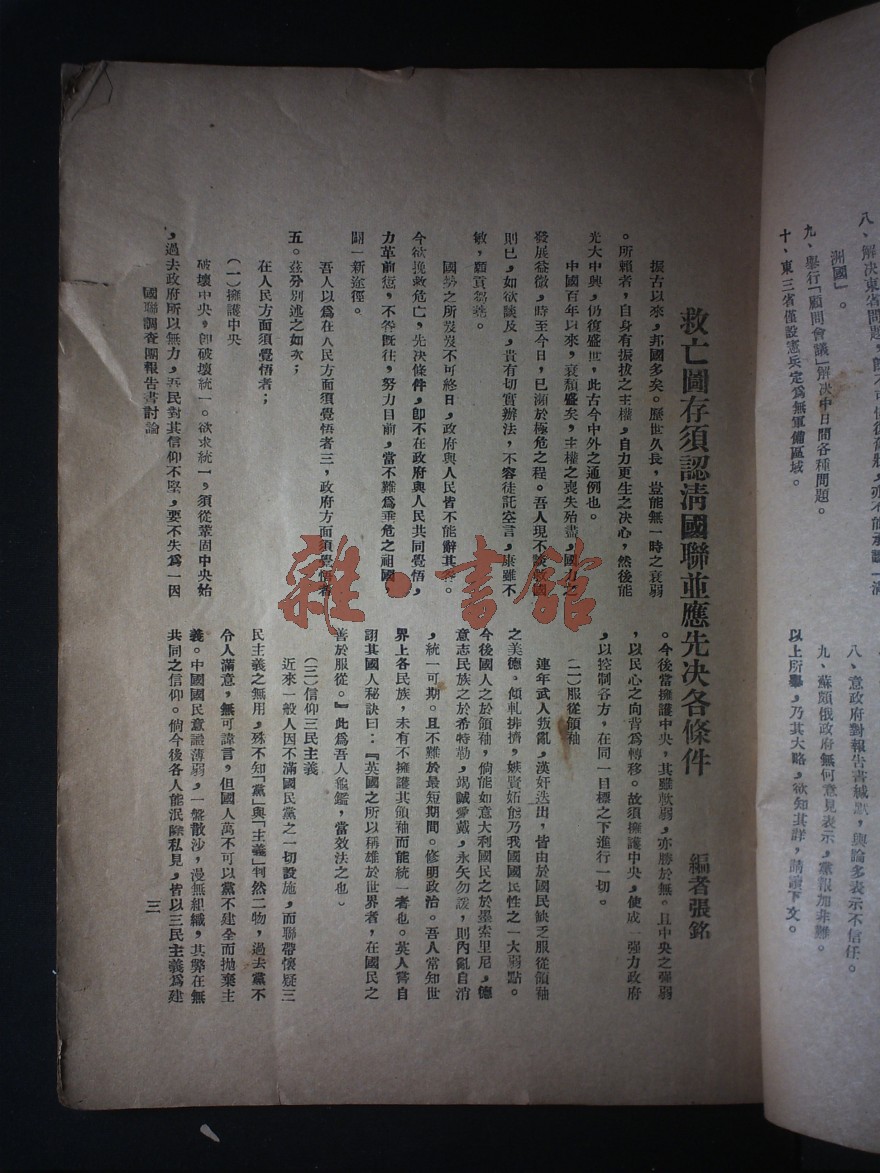 八、解决東省問題，
洲國」。
九、舉行「顧問會議」解决中日間各種問題。
十、東三省僅設憲兵定爲無軍備區域。
八、意政府對報告書緘默，輿論多表示不信任。
九、蘇聯俄政府無何意見表示，黨報加非難。
以上所舉，乃其大略，欲知其詳，請讀下文。
救亡圖存須認清國聯並應先决各條件
編者張銘
振古以來，邦國多矣。歷世久長，豈能無一時之衰弱
。所賴者，自身有振拔之主權，自力更生之决心，然後能
光大中興，仍復盛世，此古今中外之通例也。
中國百年以來，衰頹盛矣，主權之喪失殆盡，國力之
發展益微，時至今日，已瀕於極危之程。吾人現不談救國
則已，如欲談及，貴有切實辦法，不容徒託空言，銘雖不
敏，願貢芻蕘。
國勢之所岌岌不可終日，政府與人民皆不能辭其咎。
今欲挽救危亡，先决條件，卽不在政府與人民共同覺悟，
力革前愆，不咎旣往，努力目前，當不難爲垂危之祖國，
闢一新途徑。
吾人以爲在人民方面須覺悟者三，政府方面須覺悟者
五。茲分別述之如次；
在人民方面須覺悟者；
（一）擁護中央
破壞中央，卽破壞統一。欲求統一，須從鞏固中央始
，過去政府所以無力，吾民對其信仰不堅，要不失爲一因
。今後當擁護中央，其雖軟弱，亦勝於無。且中央之强弱
，以民心之向背爲轉移。故須擁護中央，使成一强力政府
，以控制各方，在同一目標之下進行一切。
（二）服從領袖
連年武人叛亂，漢奸迭出，皆由於國民缺乏服從領袖
之美德。傾軋排擠，嫉賢妬能乃我國國民性之一大弱點。
今後國人之於領袖，倘能如意大利國民之於墨索里尼，德
意志民族之於希特勒，竭誠愛戴，永矢勿諼，則內亂自消
，統一可期。且不難於最短期間。修明政治。吾人常知世
界上各民族，未有不擁護其領袖而能統一者也。英人嘗自
詡其國人秘訣曰：『英國之所以稱雄於世界者，在國民之
善於服從。』此爲吾人龜鑑，當效法之也。
（三）信仰三民主義
近來一般人因不滿國民黨之一切設施，而聯帶懷疑三
民主義之無用，殊不知「黨」與「主義」判然二物，過去黨不
令人滿意，無可諱言，但國人萬不可以黨不建全而抛棄主
義。中國國民意識薄弱，一盤散沙，漫無組織，其弊在無
共同之信仰。倘今後各人能泯除私見，皆以三民主義爲建
國聯調查團報告書討論
三
雜·書館